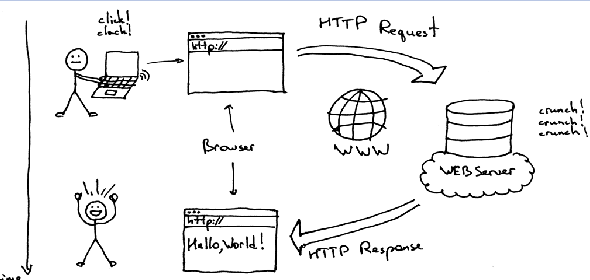 click!
clack!
http://
HTTP Request
WWW
crunch!
crunch!
crunch!
Browser
WEB Server
http://
Hello, World!
HTTP Response